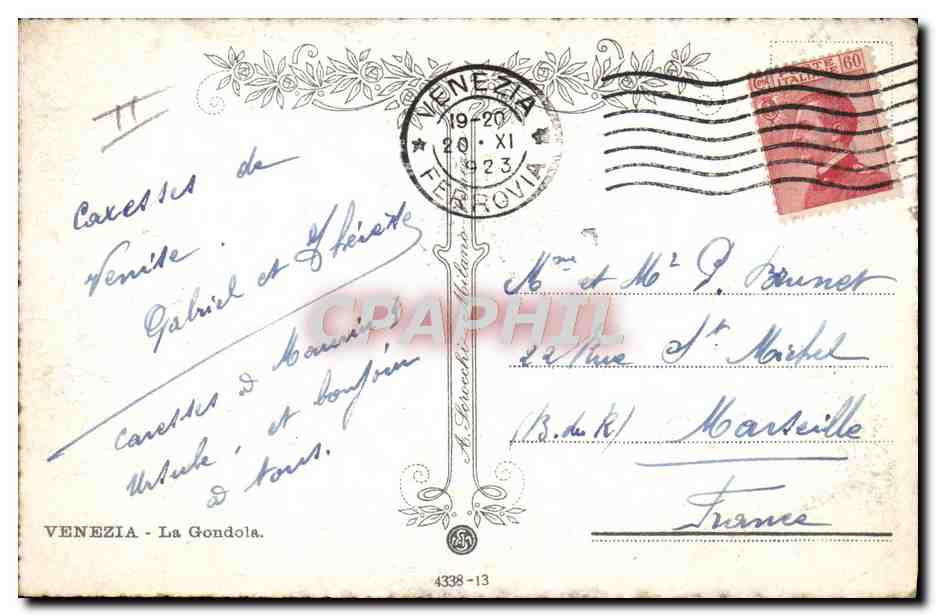 II
Caresses de
Venise.
Gabriel et Thérèse
caresses à Maurice
Ursule, et bonjour
à tous.
VENEZIA - La Gondola.
VENEZIA
19-20
20 · XI
923
FERROVIA
A. Scrocchi Milano
CPAPHIL
POSTE
ITALIANE
60
Mme et Mr P. Brunet
22 Rue St Michel
(B. du R) Marseille
France
4338-13